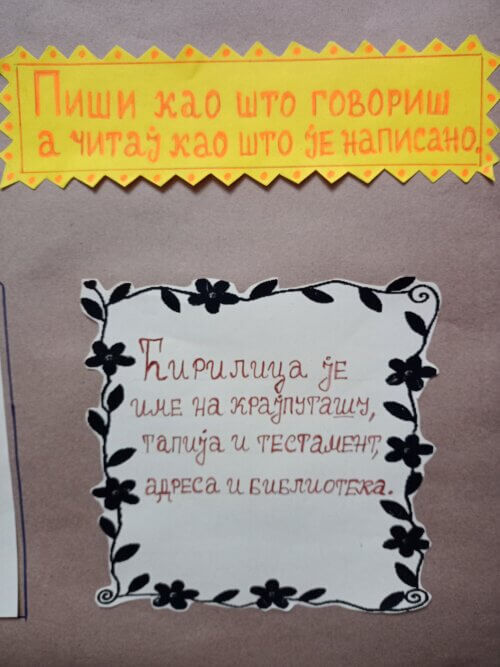 Пиши као што говориш
а читај као што је написано.
Ћирилица је
име на крајпуташу,
тапија и тестамент,
адреса и библиотека.